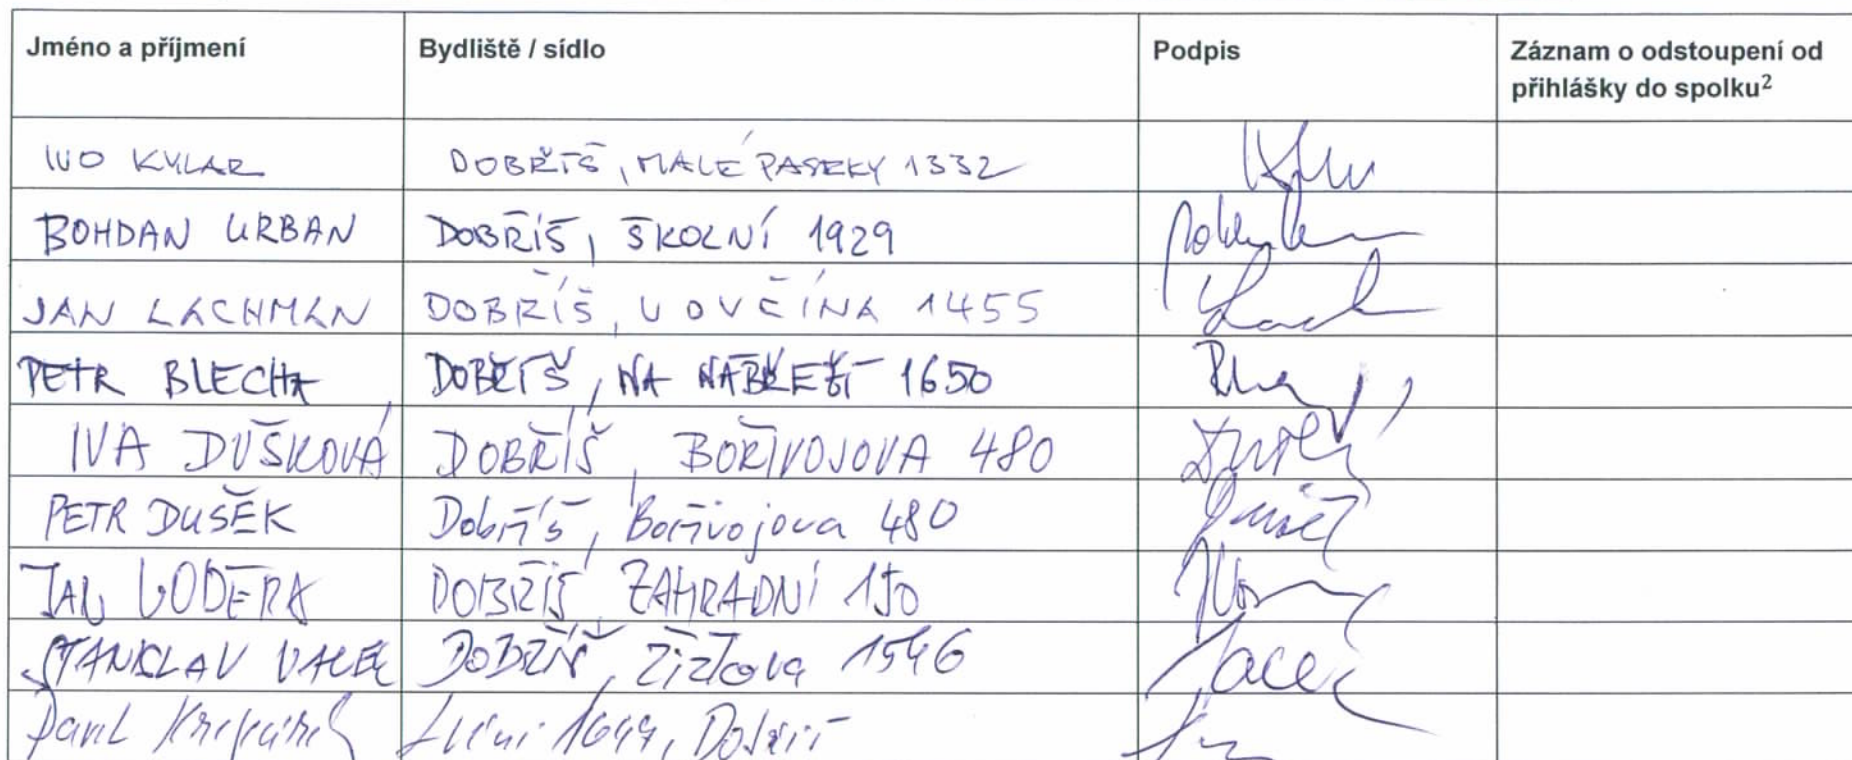 Jméno a příjmení Bydliště / sídlo Podpis Záznam o odstoupení od
přihlášky do spolku²
IVO KYLAR DOBŘÍŠ, MALÉ PASEKY 1332
BOHDAN URBAN DOBŘÍŠ, ŠKOLNÍ 1929
JAN LACHMAN DOBŘÍŠ, U OVČÍNA 1455
PETR BLECHA DOBŘÍŠ, NA NÁBŘEŽÍ 1650
IVA DUŠKOVÁ DOBŘÍŠ, BOŘIVOJOVA 480
PETR DUŠEK Dobříš, Bořivojova 480
JAN VODERA DOBŘÍŠ ZAHRADNÍ 150
STANISLAV DOBŘÍŠ, 1546
Pavel Dobříš